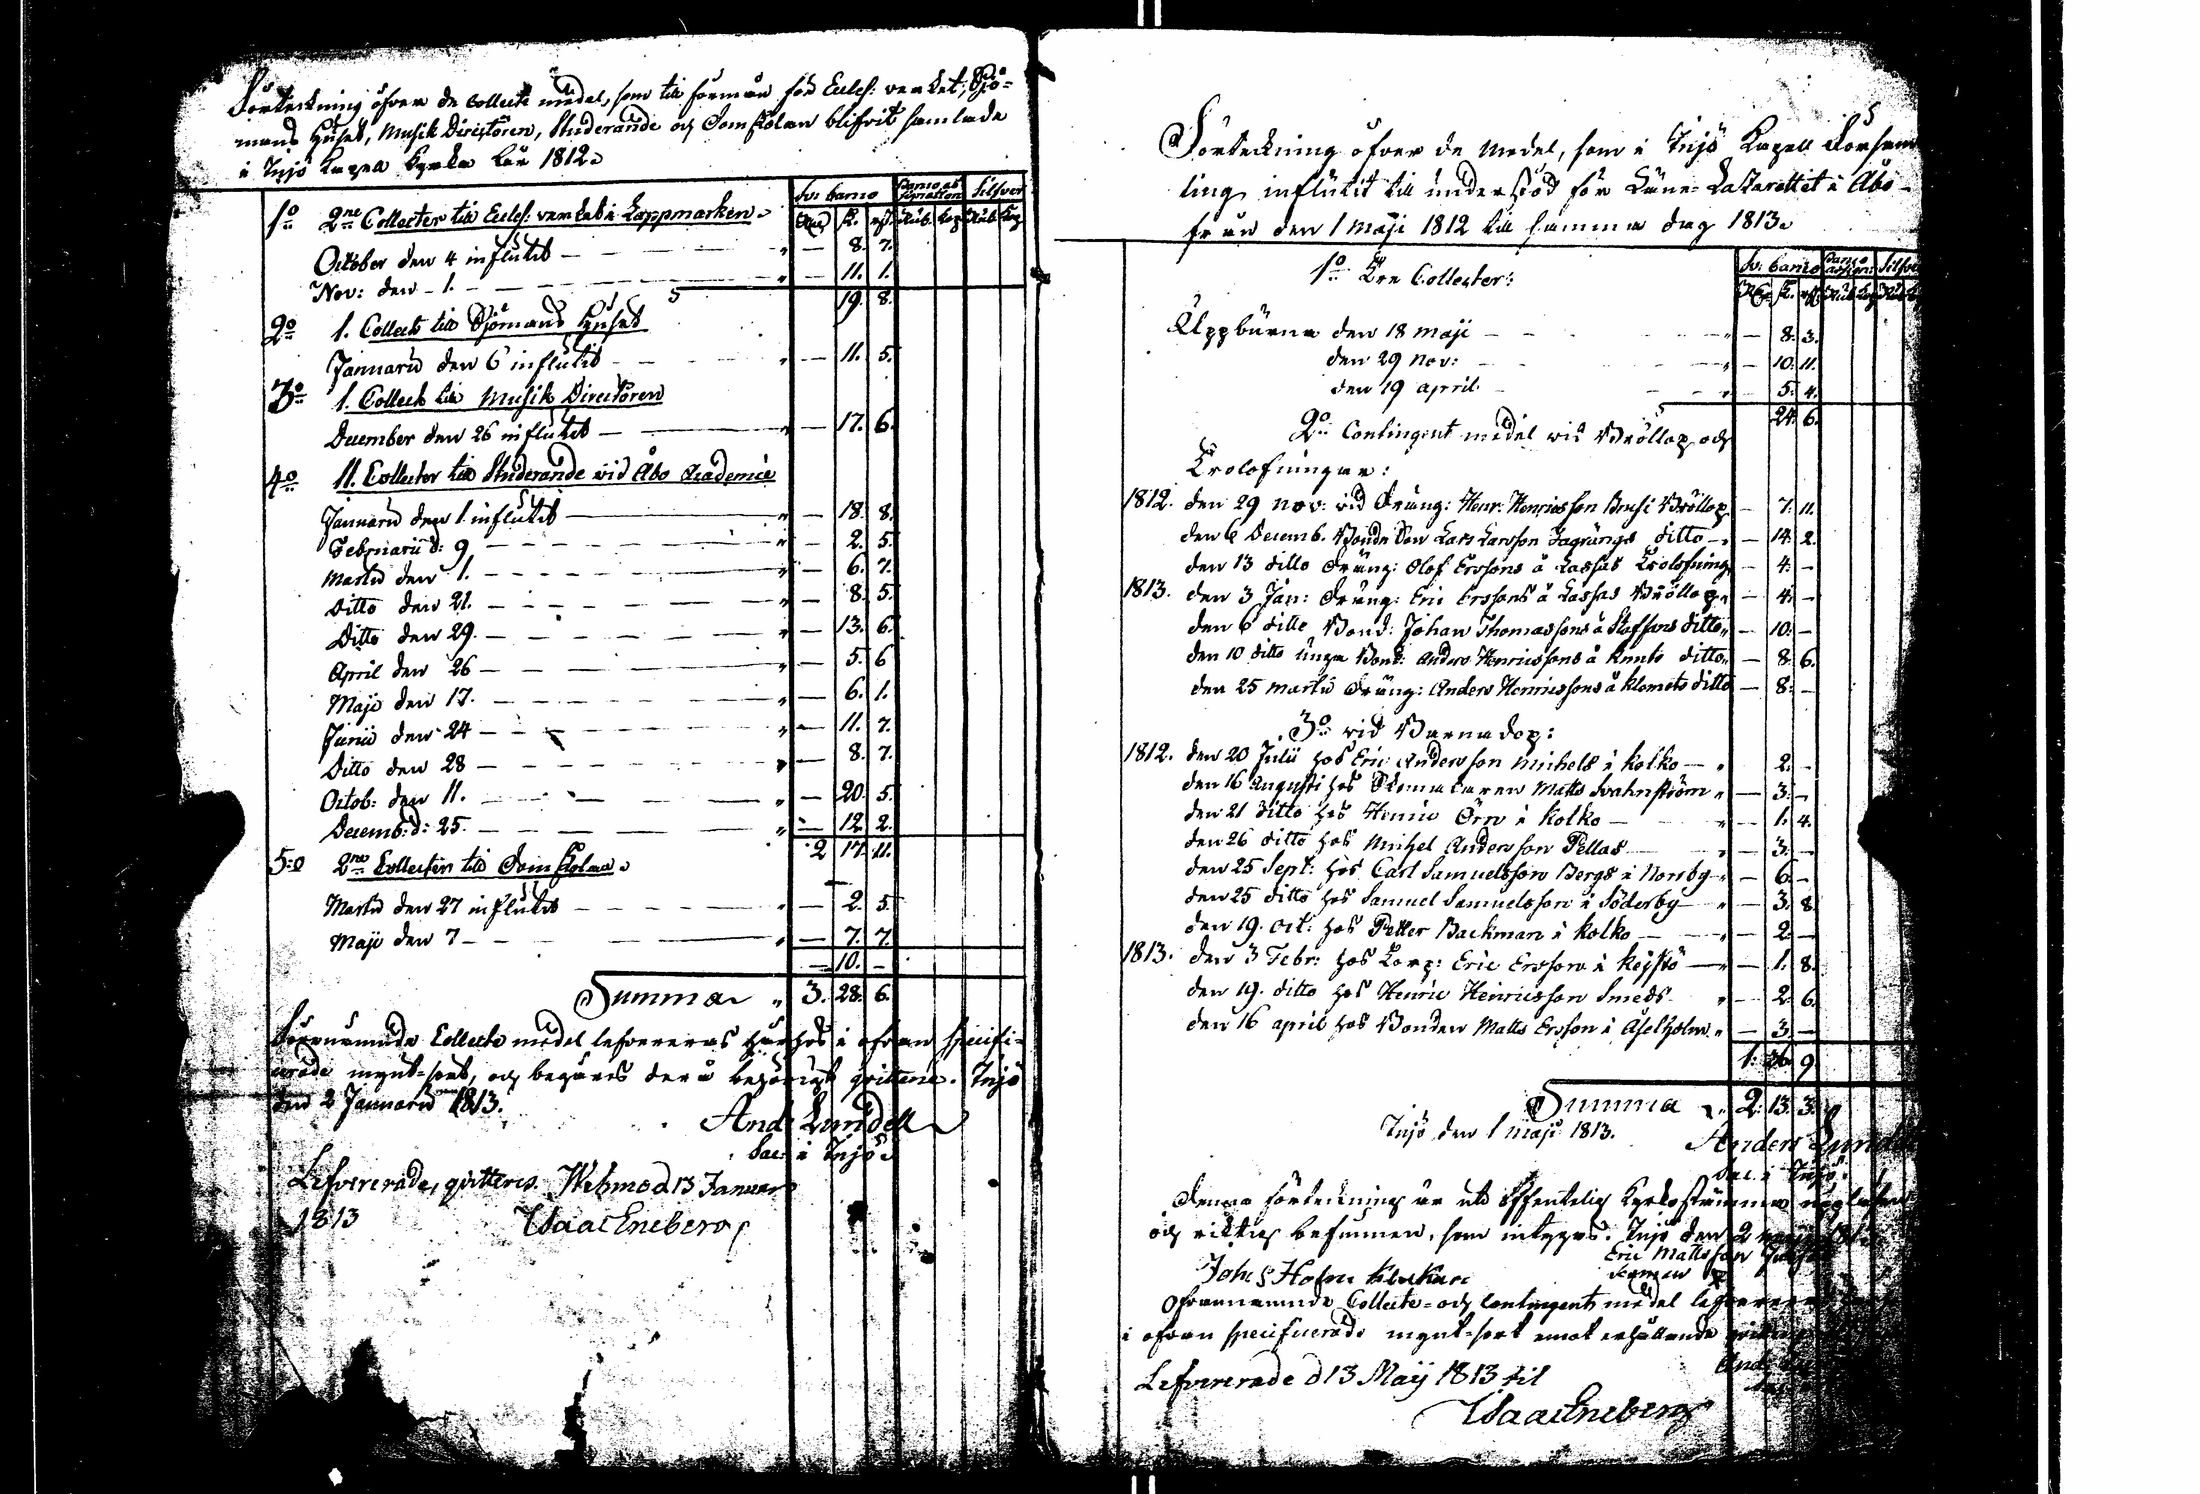 Förteckning öfver de Collecte medel, som till förmån för Eccles: verket, Sjö-
mans Huset, Musik Directören, Studerande och Domskolan blifvit samlade
i Injö Kapell Kyrka år 1812.
Sv: banco Banco assignationer Silfver
Rdr sk. rst. Rub. kop. Rub. kop.
1o 2ne Collecter till Eccles: verket i Lappmarken.
October den 4 influtit — — 8. 7.
Nov: den 1. — — 11. 1.
19. 8.
2o 1. Collect till Sjömans Huset
Januarii den 6 influtit — — 11. 5.
3o 1. Collect till Musik Directören
December den 26 influtit — — 17. 6.
4o 11. Collecter till Studerande vid Åbo Academie
Januarii den 1 influtit — — 18. 8.
Februarii d: 9 — — 2. 5.
Martii den 1. — — 6. 7.
Ditto den 21. — — 8. 5.
Ditto den 29. — — 13. 6.
April den 26 — — 5. 6
Maji den 17. — — 6. 1.
Junii den 24 — — 11. 7.
Ditto den 28 — — 8. 7.
Octob: den 11. — — 20. 5.
Decemb: d: 25. — — 12. 2.
2 17. 11.
5:o 2ne Collecter till Domskolan.
Martii den 27 influtit — — 2. 5.
Maji den 7 — — 7. 7.
— 10. —
Summa 3. 28. 6.
Förenämnde Collecte medel lefvereras härhos i ofvan specifi-
cerade mynt-sort, och begäres derå behörigt qvittence. Injö
den 2 Januarii 1813.
And: Lundell
Sac: i Injö
Lefvererade, qvitteras. Wehmo d 13 Januar
1813 Isaac Eneberg
Förteckning öfver de medel, som i Injö Kapell Församl
ling influtit till understöd för Läns-Lazarettet i Åbo
från den 1 Maji 1812 till samma dag 1813.
Sv: banco Banco assign: Silfver
1o Tre Collecter:
Uppburna den 18 Maji — — 8. 3.
den 29 Nov: — — 10. 11.
den 19 april — — 5. 4.
24. 6.
2o Contingent medel vid Bröllop och
Trolofningar:
1812. den 29 Nov: vid Dräng: Henr: Henricsson Brusi Bröllop — 7. 11.
den 6 Decemb. Bonde Son Lars Larsson ditto — 14. 2.
den 13 ditto Dräng: Olof Erssons å Lassas Trolofning — 4. —
1813. den 3 Jan: Dräng: Eric Erssons å Lassas Bröllop — 4. —
den 6 ditto Bond: Johan Thomassons å Staffans ditto — 10. —
den 10 ditto unga Bond: Anders Henricssons å Knuts ditto — 8. 6.
den 25 Martii Dräng: Anders Henricssons å Klemets ditto — 8. —
3o vid Barnadop:
1812. den 20 Julii hos Eric Andersson Michels i Kolko — 2. —
den 16 Augusti hos Skomakaren Matts Svahnström — 3. —
den 21 ditto hos Henric Örn i Kolko — 1. 4.
den 26 ditto hos Michel Andersson Pellas — 3. —
den 25 Sept: hos Carl Samuelsson Bergs i Norrby — 6. —
den 25 ditto hos Samuel Samuelsson i Söderby — 3. 8.
den 19. Oct: hos Petter Backman i Kolko — 2. —
1813. den 3 Febr: hos Korp: Eric Ersson i Kejstö — 1. 8.
den 19. ditto hos Henric Heinricsson Smeds — 2. 6.
den 16 april hos Bonden Matts Ersson i Åselholm — 3. —
1: 36. 9
Summa 2. 13. 3.
Injö den 1 Maji 1813. Anders Lundell
Sac: i Injö
Denna förteckning är uti offentelig Kyrkostämma uppläsen
och riktig befunnen, som intygas. Injö den 2
Eric Mattsson
Joh: Holm Klockare
Ofvannämnde Collecte- och Contingents medel
i ofvan specificerade mynt-sort emot erhållande
Lefvererade d 13 Maij 1813 til
Isaac Eneberg